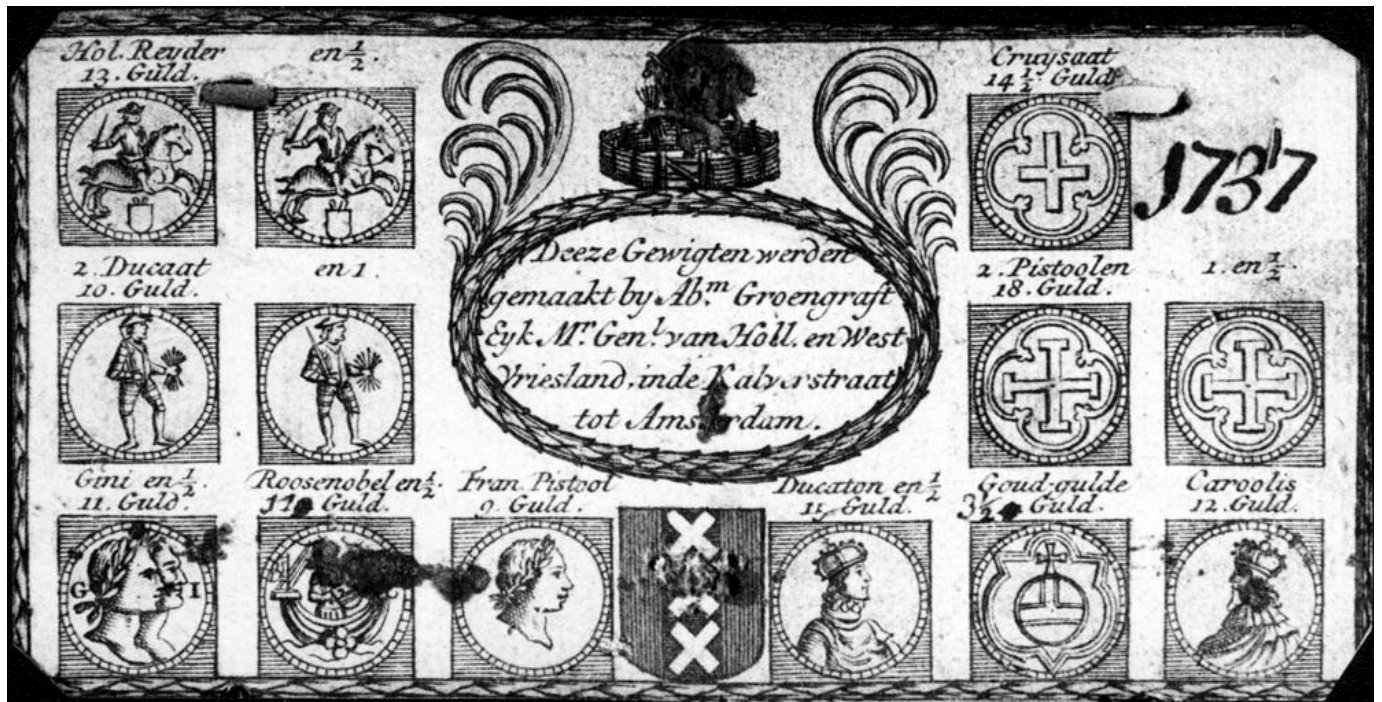 Hol. Reyder en ½.
13. Guld.
Cruysaat
14 ½. Guld.
1737
2. Ducaat en 1.
10. Guld.
Deeze Gewigten werden
gemaakt by Ab.m Groengraft
Eyk Mr. Gen.l van Holl. en West
Vriesland, inde Kalverstraat
tot Amsterdam.
2. Pistoolen 1. en ½.
18. Guld.
Gini en ½.
11. Guld.
G I
Roosenobel en ½.
11 Guld.
Fran. Pistool
9. Guld.
Ducaton en ½
15 Guld.
Goud-gulde
3½ Guld.
Caroolis
12. Guld.